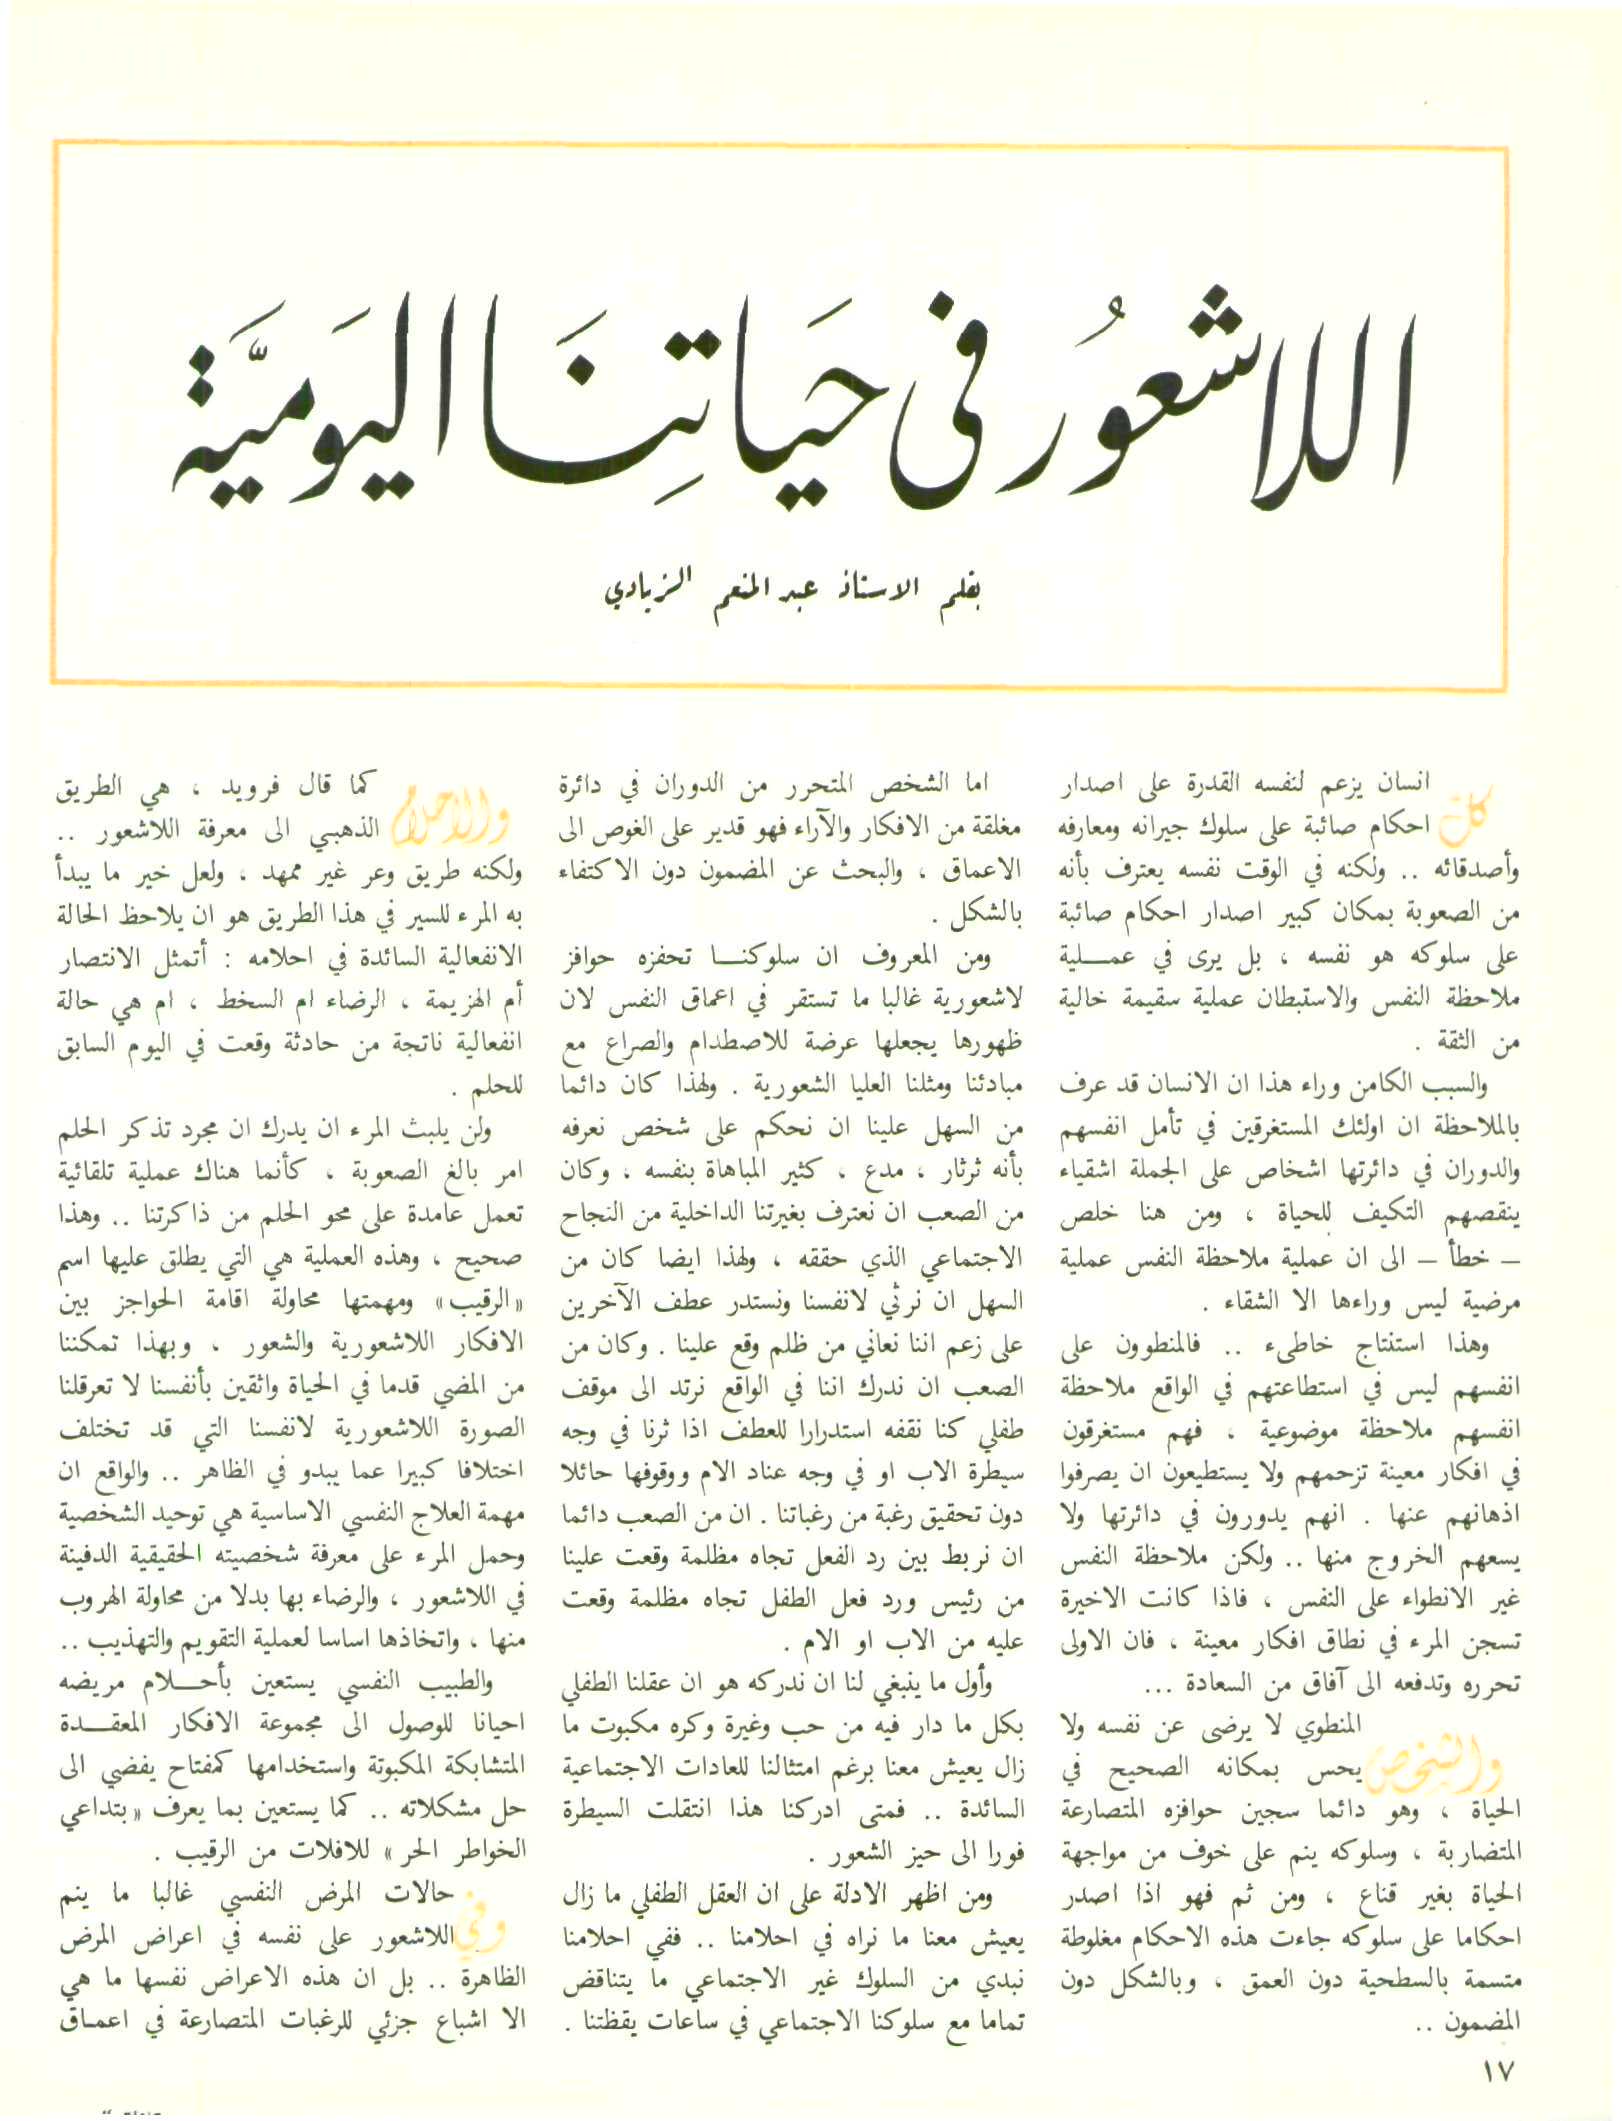 اللاشعُور فى حيَاتِنَا اليَوميَّة
بقلم الاستاذ عبد المنعم الزيادي
كل انسان يزعم لنفسه القدرة على اصدار
احكام صائبة على سلوك جيرانه ومعارفه
وأصدقائه .. ولكنه في الوقت نفسه يعترف بأنه
من الصعوبة بمكان كبير اصدار احكام صائبة
على سلوكه هو نفسه ، بل يرى في عملية
ملاحظة النفس والاستبطان عملية سقيمة خالية
من الثقة .
والسبب الكامن وراء هذا ان الانسان قد عرف
بالملاحظة ان اولئك المستغرقين في تأمل انفسهم
والدوران في دائرتها اشخاص على الجملة اشقياء
ينقصهم التكيف للحياة ، ومن هنا خلص
– خطأ – الى ان عملية ملاحظة النفس عملية
مرضية ليس وراءها الا الشقاء .
وهذا استنتاج خاطىء .. فالمنطوون على
انفسهم ليس في استطاعتهم في الواقع ملاحظة
انفسهم ملاحظة موضوعية ، فهم مستغرقون
في افكار معينة تزحمهم ولا يستطيعون ان يصرفوا
اذهانهم عنها . انهم يدورون في دائرتها ولا
يسعهم الخروج منها .. ولكن ملاحظة النفس
غير الانطواء على النفس ، فاذا كانت الاخيرة
تسجن المرء في نطاق افكار معينة ، فان الاولى
تحرره وتدفعه الى آفاق من السعادة ...
والشخص المنطوي لا يرضى عن نفسه ولا
يحس بمكانه الصحيح في
الحياة ، وهو دائما سجين حوافزه المتصارعة
المتضاربة ، وسلوكه ينم على خوف من مواجهة
الحياة بغير قناع ، ومن ثم فهو اذا اصدر
احكاما على سلوكه جاءت هذه الاحكام مغلوطة
متسمة بالسطحية دون العمق ، وبالشكل دون
المضمون ..
اما الشخص المتحرر من الدوران في دائرة
مغلقة من الافكار والآراء فهو قدير على الغوص الى
الاعماق ، والبحث عن المضمون دون الاكتفاء
بالشكل .
ومن المعروف ان سلوكنا تحفزه حوافز
لاشعورية غالبا ما تستقر في اعماق النفس لان
ظهورها يجعلها عرضة للاصطدام والصراع مع
مبادئنا ومثلنا العليا الشعورية . ولهذا كان دائما
من السهل علينا ان نحكم على شخص نعرفه
بأنه ثرثار ، مدع ، كثير المباهاة بنفسه ، وكان
من الصعب ان نعترف بغيرتنا الداخلية من النجاح
الاجتماعي الذي حققه ، ولهذا ايضا كان من
السهل ان نرثي لانفسنا ونستدر عطف الآخرين
على زعم اننا نعاني من ظلم وقع علينا . وكان من
الصعب ان ندرك اننا في الواقع نرتد الى موقف
طفلي كنا نقفه استدرارا للعطف اذا ثرنا في وجه
سيطرة الاب او في وجه عناد الام ووقوفها حائلا
دون تحقيق رغبة من رغباتنا . ان من الصعب دائما
ان نربط بين رد الفعل تجاه مظلمة وقعت علينا
من رئيس ورد فعل الطفل تجاه مظلمة وقعت
عليه من الاب او الام .
وأول ما ينبغي لنا ان ندركه هو ان عقلنا الطفلي
بكل ما دار فيه من حب وغيرة وكره مكبوت ما
زال يعيش معنا برغم امتثالنا للعادات الاجتماعية
السائدة .. فمتى ادركنا هذا انتقلت السيطرة
فورا الى حيز الشعور .
ومن اظهر الادلة على ان العقل الطفلي ما زال
يعيش معنا ما نراه في احلامنا .. ففي احلامنا
نبدي من السلوك غير الاجتماعي ما يتناقض
تماما مع سلوكنا الاجتماعي في ساعات يقظتنا .
والاحلام كما قال فرويد ، هي الطريق
الذهبي الى معرفة اللاشعور ..
ولكنه طريق وعر غير ممهد ، ولعل خير ما يبدأ
به المرء للسير في هذا الطريق هو ان يلاحظ الحالة
الانفعالية السائدة في احلامه : أتمثل الانتصار
أم الهزيمة ، الرضاء ام السخط ، ام هي حالة
انفعالية ناتجة من حادثة وقعت في اليوم السابق
للحلم .
ولن يلبث المرء ان يدرك ان مجرد تذكر الحلم
امر بالغ الصعوبة ، كأنما هناك عملية تلقائية
تعمل عامدة على محو الحلم من ذاكرتنا .. وهذا
صحيح ، وهذه العملية هي التي يطلق عليها اسم
«الرقيب» ومهمتها محاولة اقامة الحواجز بين
الافكار اللاشعورية والشعور ، وبهذا تمكننا
من المضي قدما في الحياة واثقين بأنفسنا لا تعرقلنا
الصورة اللاشعورية لانفسنا التي قد تختلف
اختلافا كبيرا عما يبدو في الظاهر .. والواقع ان
مهمة العلاج النفسي الاساسية هي توحيد الشخصية
وحمل المرء على معرفة شخصيته الحقيقية الدفينة
في اللاشعور ، والرضاء بها بدلا من محاولة الهروب
منها ، واتخاذها اساسا لعملية التقويم والتهذيب ..
والطبيب النفسي يستعين بأحلام مريضه
احيانا للوصول الى مجموعة الافكار المعقدة
المتشابكة المكبوتة واستخدامها كمفتاح يفضي الى
حل مشكلاته .. كما يستعين بما يعرف «بتداعي
الخواطر الحر» للافلات من الرقيب .
وفي حالات المرض النفسي غالبا ما ينم
اللاشعور على نفسه في اعراض المرض
الظاهرة .. بل ان هذه الاعراض نفسها ما هي
الا اشباع جزئي للرغبات المتصارعة في اعماق
١٧